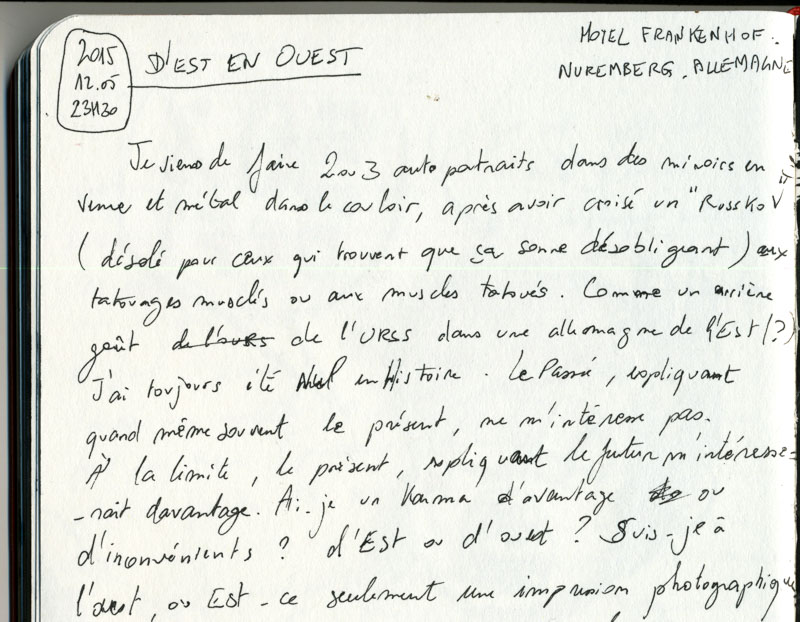 2015
12.05
23H30
D'EST EN OUEST
HOTEL FRANKENHOF.
NUREMBERG. ALLEMAGNE
Je viens de faire 2 ou 3 auto portraits dans des miroirs en
verre et métal dans le couloir, après avoir croisé un "Russkov"
(désolé pour ceux qui trouvent que ça sonne désobligeant) aux
tatouages musclés ou aux muscles tatoués. Comme un arrière
goût de l'ours de l'URSS dans une allemagne de l'Est (?)
J'ai toujours été Nul en Histoire. Le Passé, expliquant
quand même souvent le présent, ne m'intéresse pas.
À la limite, le présent, expliquant le futur m'intéresse-
-rait davantage. Ai-je un Karma d'avantage ou
d'inconvénients ? d'Est ou d'ouest ? Suis-je à
l'ouest, ou Est-ce seulement une impression photographique